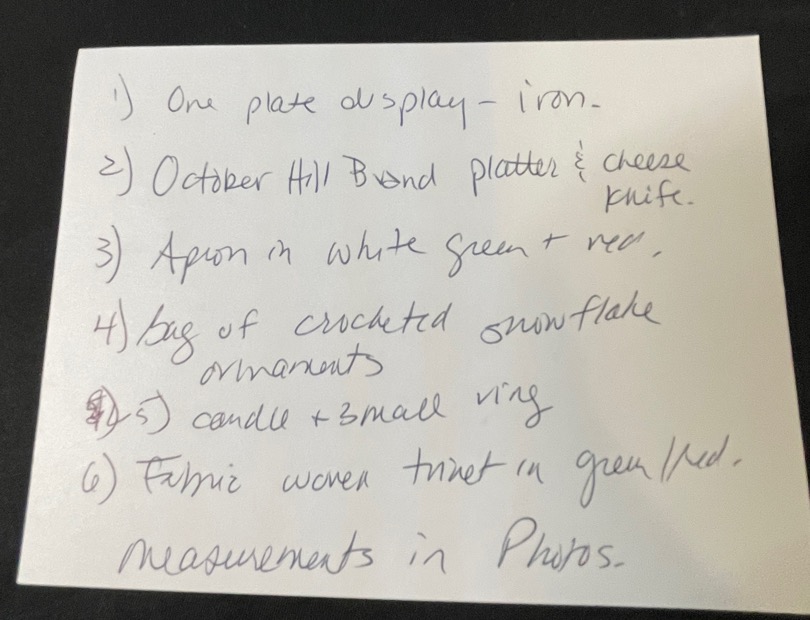 1) One plate display - iron.
2) October Hill Brand platter & cheese
knife.
3) Apron in white green + red.
4) bag of crocheted snowflake
ornaments
5) candle + small ring
6) Fabric woven trivet in green/red.
measurements in Photos.